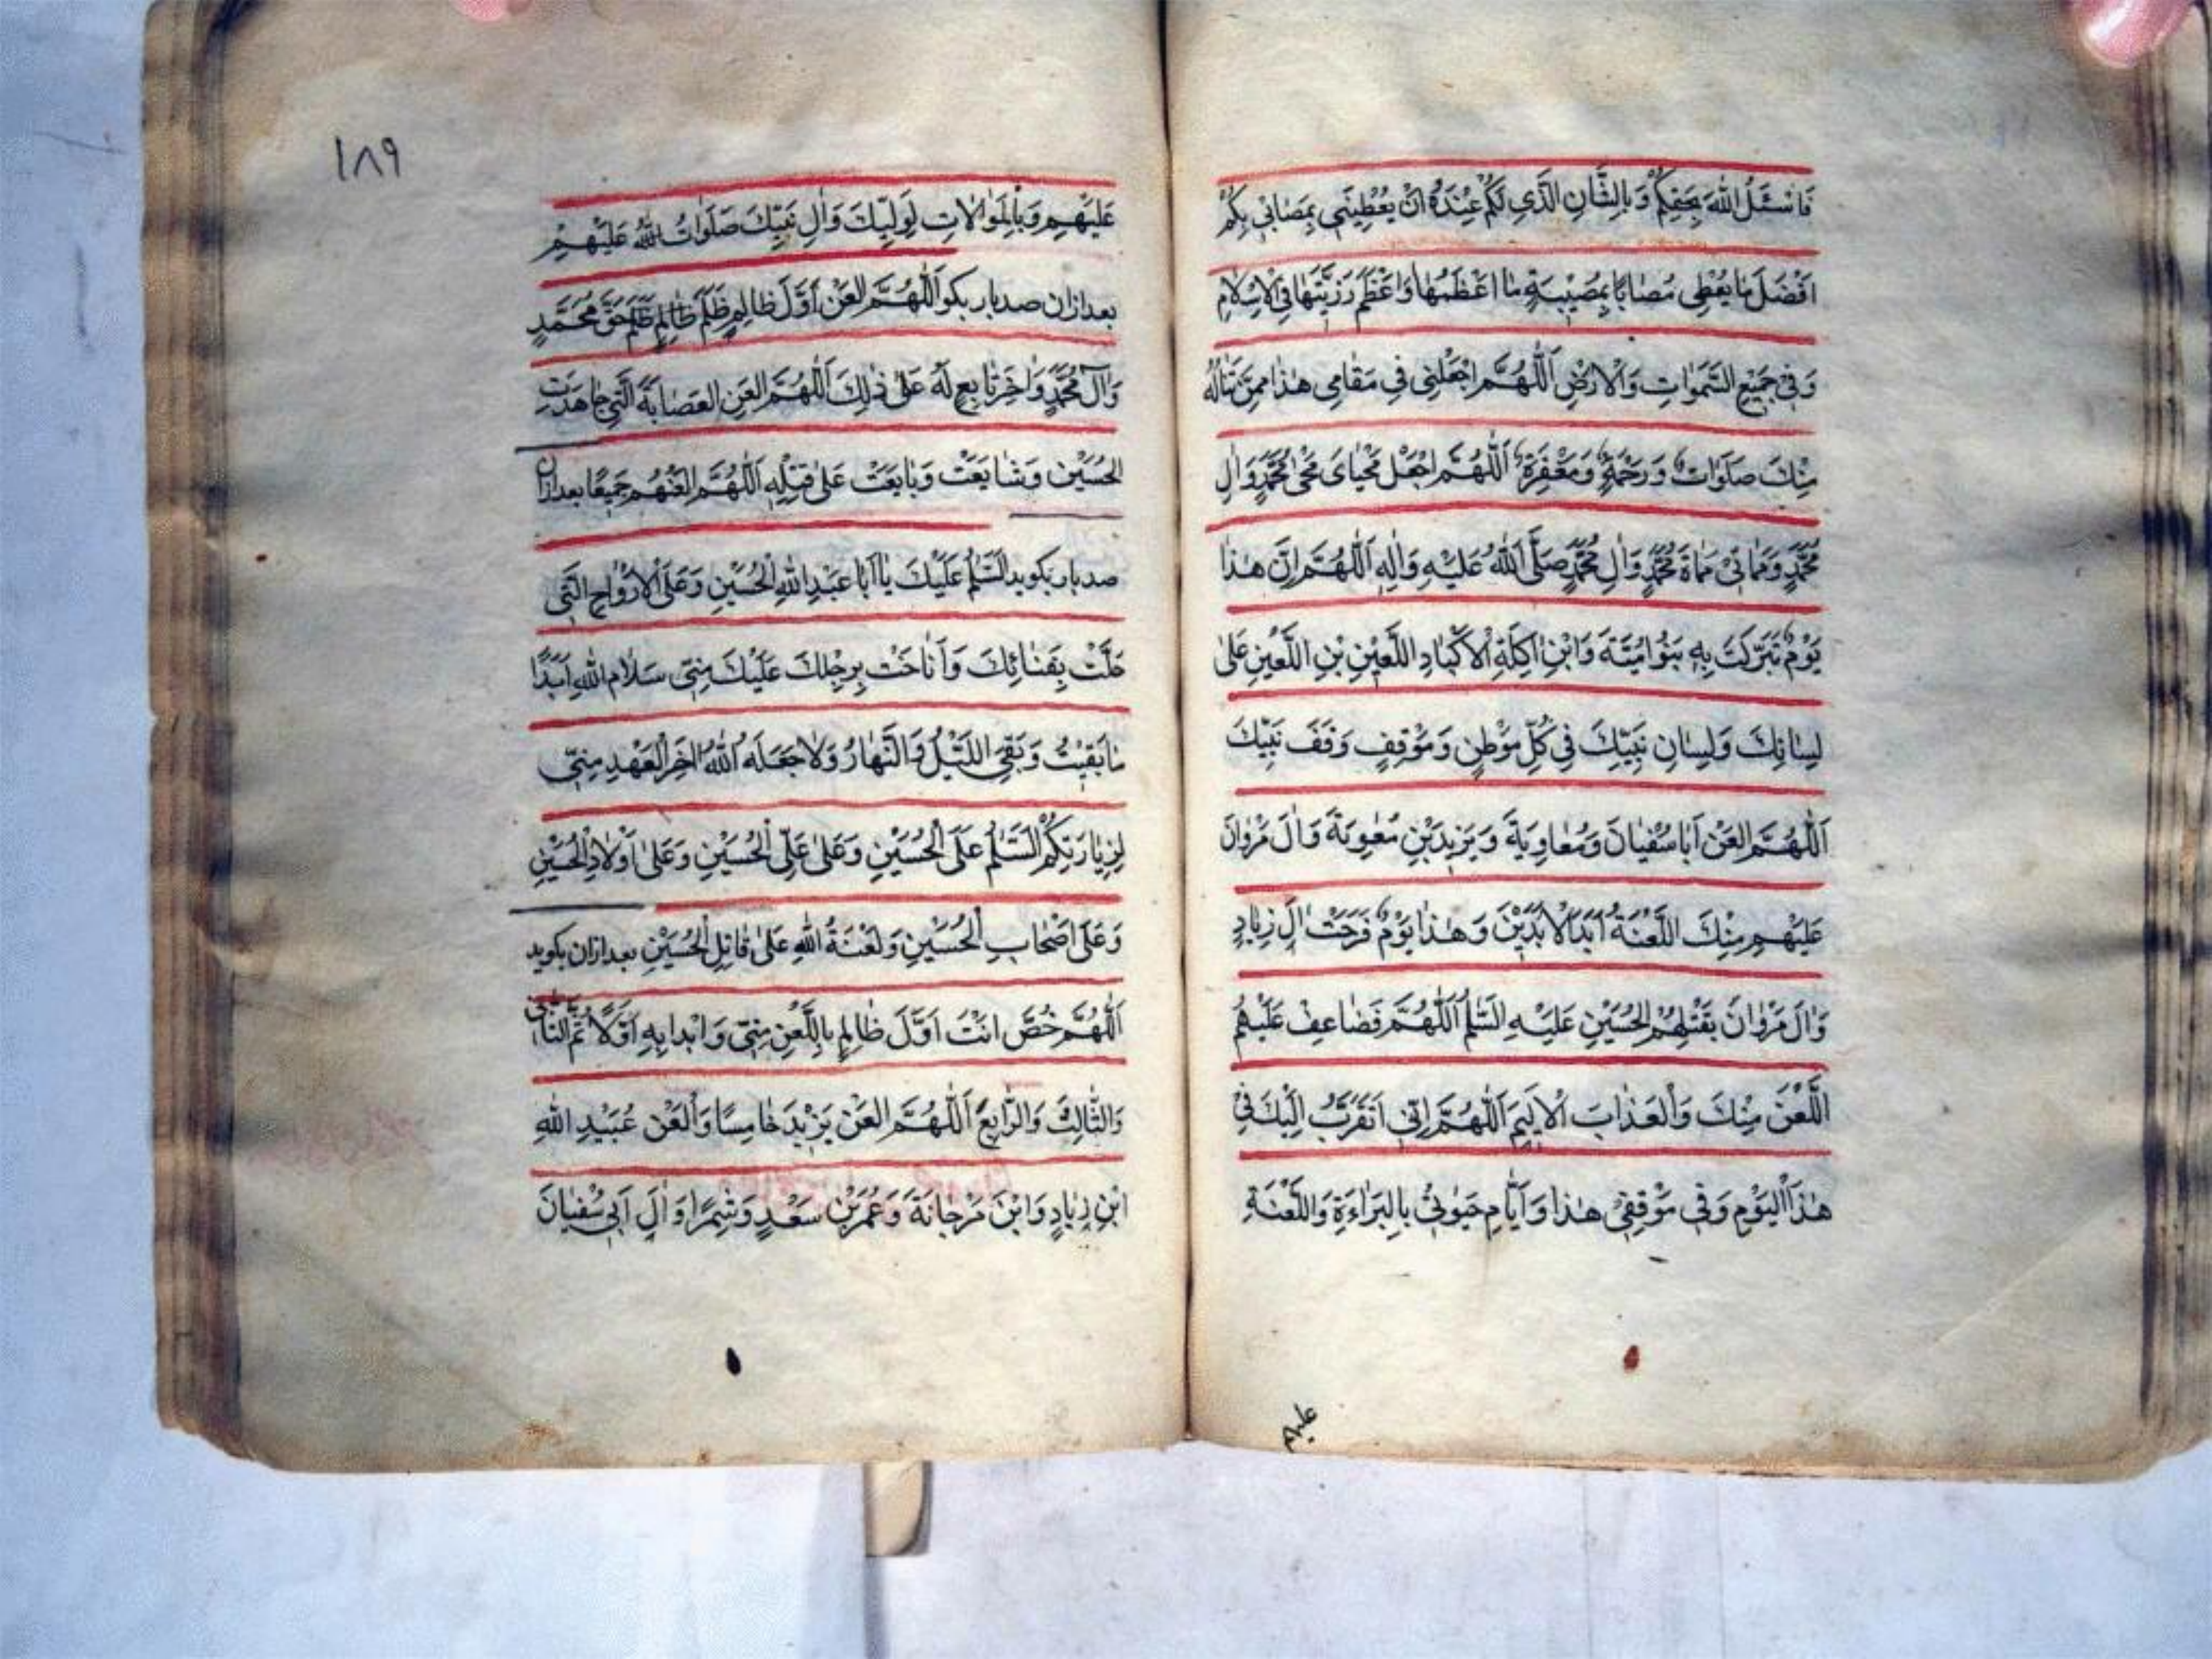 فَاَسْئَلُ اللهَ بِحَقِّكُمْ وَبِالشَّانِ الَّذِی لَكُمْ عِنْدَهُ اَنْ يُعْطِيَنِی بِمُصَابِی بِكُمْ
اَفْضَلَ مَا يُعْطِی مُصَابًا بِمُصِيْبَتِهِ مَا اَعْظَمَهَا وَاَعْظَمَ رَزِيَّتَهَا فِی الْاِسْلَامِ
وَفِی جَمِيْعِ السَّمَوَاتِ وَالْاَرْضِ اَللّٰهُمَّ اجْعَلْنِی فِی مَقَامِی هٰذَا مِمَّنْ تَنَالُهُ
مِنْكَ صَلَوَاتٌ وَرَحْمَةٌ وَمَغْفِرَةٌ اَللّٰهُمَّ اجْعَلْ مَحْيَایَ مَحْیٰ مُحَمَّدٍ وَاٰلِ
مُحَمَّدٍ وَمَمَاتِی مَمَاةَ مُحَمَّدٍ وَاٰلِ مُحَمَّدٍ صَلَّی اللهُ عَلَيْهِ وَاٰلِهِ اَللّٰهُمَّ اِنَّ هٰذَا
يَوْمٌ تَبَرَّكَتْ بِهِ بَنُوْا اُمَيَّةَ وَابْنُ اٰكِلَةِ الْاَكْبَادِ اللَّعِيْنِ بْنِ اللَّعِيْنِ عَلیٰ
لِسَانِكَ وَلِسَانِ نَبِيِّكَ فِی كُلِّ مَوْطِنٍ وَمَوْقِفٍ وَقَفَ نَبِيُّكَ
اَللّٰهُمَّ الْعَنْ اَبَا سُفْيَانَ وَمُعَاوِيَةَ وَيَزِيْدَ بْنِ مَعٰوِيَةَ وَاٰلَ مَرْوَانَ
عَلَيْهِمْ مِنْكَ اللَّعْنَةُ اَبَدَ الْاٰبَدِيْنَ وَهٰذَا يَوْمٌ فَرَحَتْ اٰلَ زِيَادٍ
وَاٰلَ مَرْوَانَ بِقَتْلِهِمُ الْحُسَيْنِ عَلَيْهِ السَّلٰمُ اَللّٰهُمَّ فَضَاعِفْ عَلَيْهِمُ
اللَّعْنَ مِنْكَ وَالْعَذَابَ الْاَلِيْمَ اَللّٰهُمَّ اِنِّی اَتَقَرَّبُ اِلَيْكَ فِی
هٰذَا الْيَوْمِ وَفِی مَوْقِفِی هٰذَا وَاَيَّامِ حَيٰوتِی بِالْبَرَاءَةِ وَاللَّعْنَةِ
عليهم
١٨٩
عَلَيْهِمْ وَبِالْمُوَالَاتِ لِوَلِيِّكَ وَاٰلِ نَبِيِّكَ صَلَوَاتُ اللهِ عَلَيْهِمْ
بعد ازان صد بار بکو اَللّٰهُمَّ الْعَنْ اَوَّلَ ظَالِمٍ ظَلَمَ ظَالِمٍ ظَلَمَ حَقَّ مُحَمَّدٍ
وَاٰلَ مُحَمَّدٍ وَاٰخِرَ تَابِعٍ لَهُ عَلیٰ ذٰلِكَ اَللّٰهُمَّ الْعَنِ الْعِصَابَةَ الَّتِی جَاهَدَتِ
الْحُسَيْنَ وَشَايَعَتْ وَبَايَعَتْ عَلیٰ قَتْلِهِ اَللّٰهُمَّ الْعَنْهُمْ جَمِيْعًا بعد ازان
صد بار بکوید اَلسَّلٰمُ عَلَيْكَ يَا اَبَا عَبْدِ اللهِ الْحُسَيْنِ وَعَلَی الْاَرْوَاحِ الَّتِی
حَلَّتْ بِفَنَائِكَ وَاَنَاخَتْ بِرِحْلِكَ عَلَيْكَ مِنِّی سَلَامُ اللهِ اَبَدًا
مَا بَقِيْتُ وَبَقِیَ اللَّيْلُ وَالنَّهَارُ وَلَا جَعَلَهُ اللهُ اٰخِرَ الْعَهْدِ مِنِّی
لِزِيَارَتِكُمْ اَلسَّلٰمُ عَلَی الْحُسَيْنِ وَعَلیٰ عَلِیِّ الْحُسَيْنِ وَعَلیٰ اَوْلَادِ الْحُسَيْنِ
وَعَلیٰ اَصْحَابِ الْحُسَيْنِ وَلَعْنَةُ اللهِ عَلیٰ قَاتِلِ الْحُسَيْنِ بعد ازان بکوید
اَللّٰهُمَّ خُصَّ اَنْتَ اَوَّلَ ظَالِمٍ بِاللَّعْنِ مِنِّی وَابْدَا بِهِ اَوَّلًا ثُمَّ الثَّانِی
وَالثَّالِثَ وَالرَّابِعَ اَللّٰهُمَّ الْعَنْ يَزِيْدَ خَامِسًا وَالْعَنْ عُبَيْدِ اللهِ
ابْنِ زِيَادٍ وَابْنَ مَرْجَانَةَ وَعُمَرَ بْنَ سَعْدٍ وَشِمْرًا وَاٰلَ اَبِی سُفْيَانَ